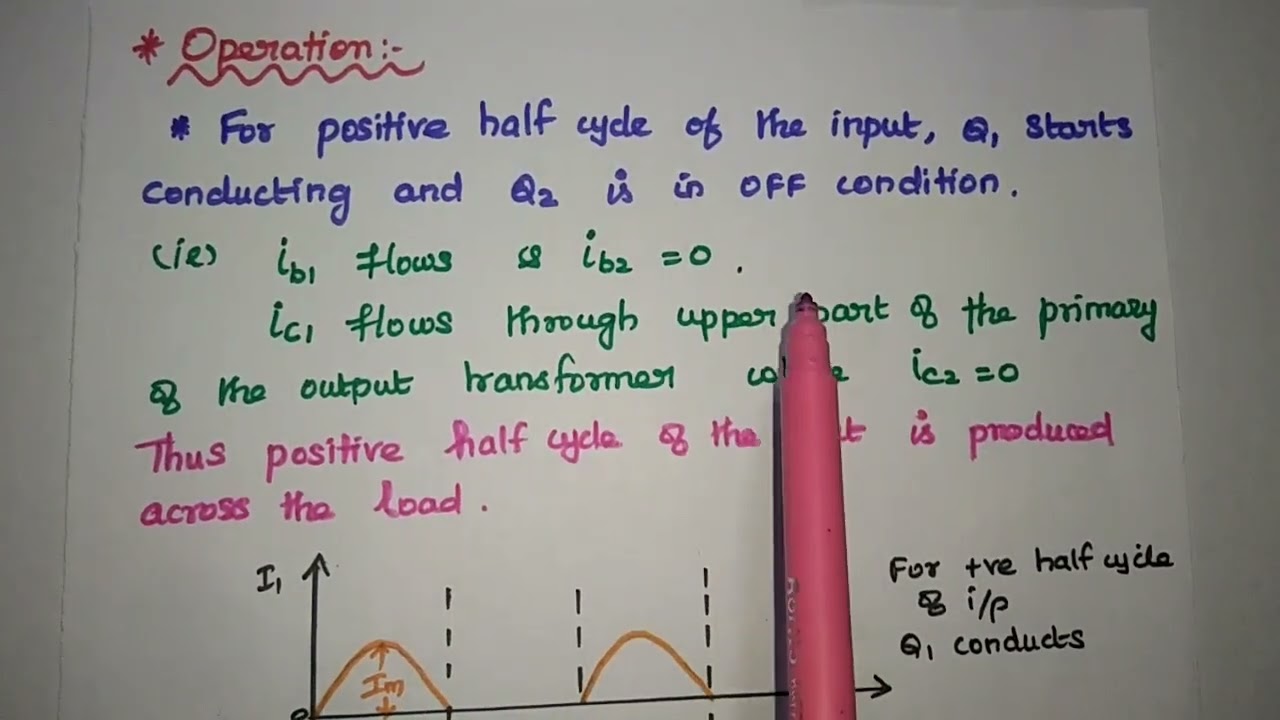 * Operation:-
* For positive half cycle of the input, Q1 starts
conducting and Q2 is in OFF condition.
(ie) ib1 flows & ib2 = 0.
ic1 flows through upper part of the primary
of the output transformer ic2 = 0
Thus positive half cycle of the is produced
across the load.
I1
Im
0
For +ve half cycle
of i/p
Q1 conducts